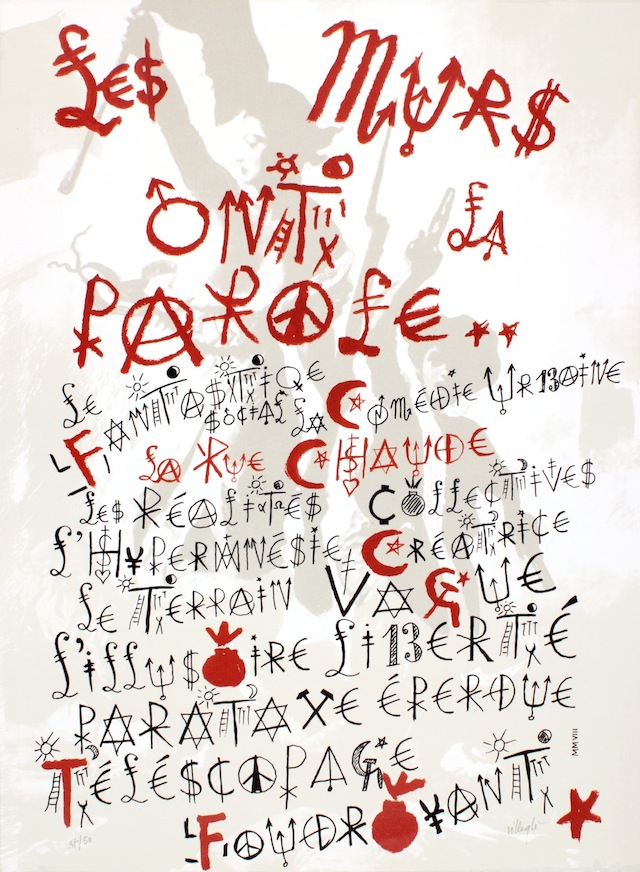 LES MURS
ONT LA
PAROLE..
LE FANTASTIQUE SOCIAL LA COMÉDIE URBAINE
LA RUE CHAUDE
LES RÉALITÉS COLLECTIVES
L'HYPERMNÉSIE CRÉATRICE
LE TERRAIN VAGUE
L'ILLUSOIRE LIBERTÉ
PARATAXE ÉPERDUE
TÉLÉSCOPAGE
FOUDROYANT
MMVIII
Villeglé